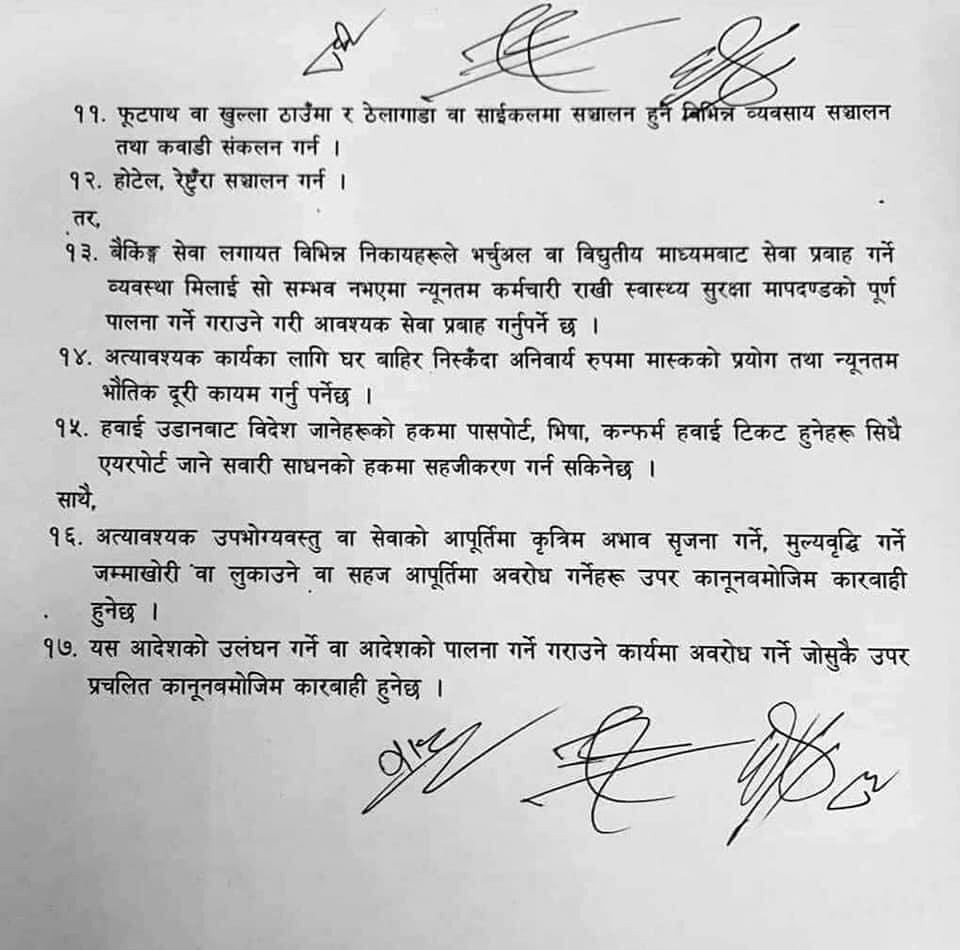 ११. फूटपाथ वा खुल्ला ठाउँमा र ठेलागाडा वा साईकलमा सञ्चालन हुने विभिन्न व्यवसाय सञ्चालन
तथा कवाडी संकलन गर्न ।
१२. होटेल, रेष्टुँरा सञ्चालन गर्न ।
तर,
१३. बैकिङ्ग सेवा लगायत विभिन्न निकायहरूले भर्चुअल वा विद्युतीय माध्यमबाट सेवा प्रवाह गर्ने
व्यवस्था मिलाई सो सम्भव नभएमा न्यूनतम कर्मचारी राखी स्वास्थ्य सुरक्षा मापदण्डको पूर्ण
पालना गर्ने गराउने गरी आवश्यक सेवा प्रवाह गर्नुपर्ने छ ।
१४. अत्यावश्यक कार्यका लागि घर बाहिर निस्कँदा अनिवार्य रुपमा मास्कको प्रयोग तथा न्यूनतम
भौतिक दूरी कायम गर्नु पर्नेछ ।
१५. हवाई उडानबाट विदेश जानेहरूको हकमा पासपोर्ट, भिषा, कन्फर्म हवाई टिकट हुनेहरू सिधै
एयरपोर्ट जाने सवारी साधनको हकमा सहजीकरण गर्न सकिनेछ ।
साथै,
१६. अत्यावश्यक उपभोग्यवस्तु वा सेवाको आपूर्तिमा कृत्रिम अभाव सृजना गर्ने, मुल्यवृद्धि गर्ने
जम्माखोरी वा लुकाउने वा सहज आपूर्तिमा अवरोध गर्नेहरू उपर कानूनबमोजिम कारवाही
हुनेछ ।
१७. यस आदेशको उलंघन गर्ने वा आदेशको पालना गर्ने गराउने कार्यमा अवरोध गर्ने जोसुकै उपर
प्रचलित कानूनबमोजिम कारवाही हुनेछ ।